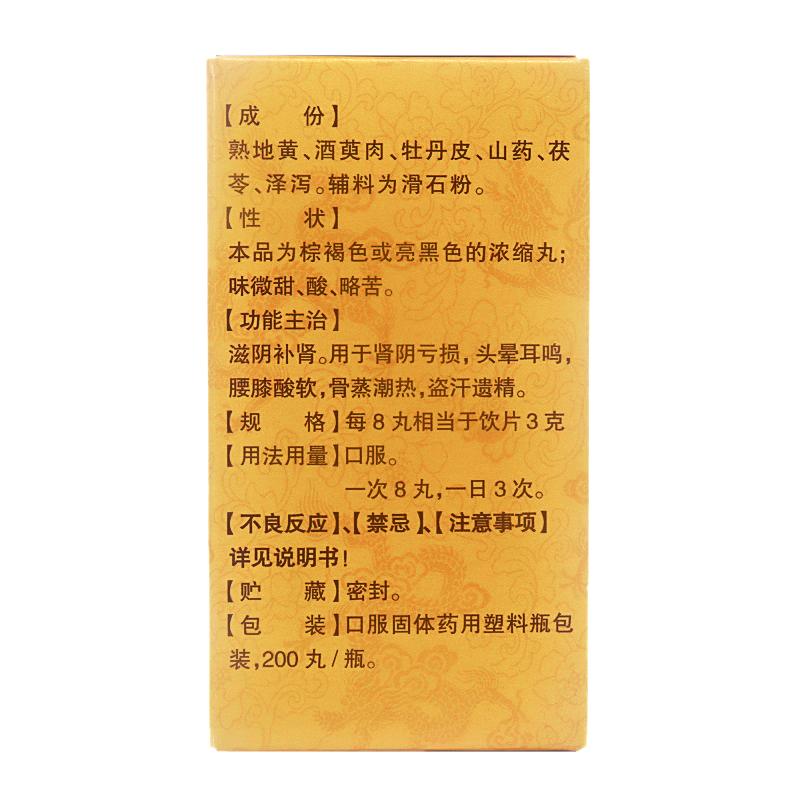 【成　　份】
熟地黄、酒萸肉、牡丹皮、山药、茯
苓、泽泻。辅料为滑石粉。
【性　　状】
本品为棕褐色或亮黑色的浓缩丸；
味微甜、酸、略苦。
【功能主治】
滋阴补肾。用于肾阴亏损，头晕耳鸣，
腰膝酸软，骨蒸潮热，盗汗遗精。
【规　　格】每8丸相当于饮片3克
【用法用量】口服。
一次8丸，一日3次。
【不良反应】、【禁忌】、【注意事项】
详见说明书！
【贮　　藏】密封。
【包　　装】口服固体药用塑料瓶包
装，200丸/瓶。